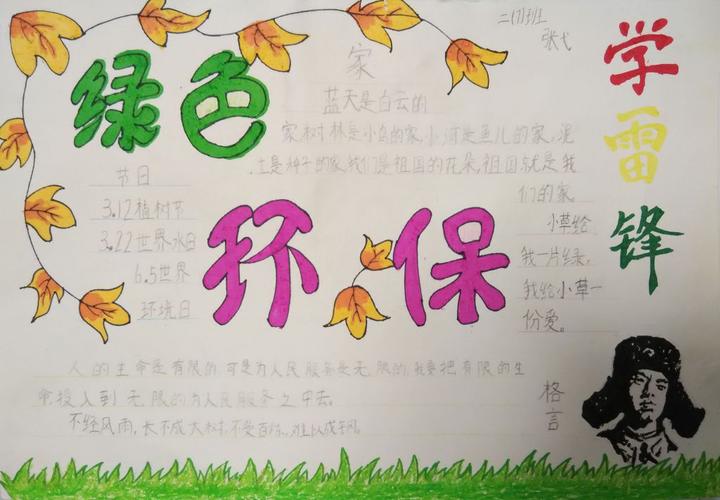 二(7)班
张弋
绿色
环保
学雷锋
家
蓝天是白云的
家,树林是小鸟的家,小河是鱼儿的家,泥
土是种子的家,我们是祖国的花朵,祖国就是我
们的家
小草给
我一片绿,
我给小草一
份爱。
节日
3.12植树节
3.22世界水日
6.5世界
环境日
人的生命是有限的,可是为人民服务是无限的,我要把有限的生
命投入到无限的为人民服务之中去。
不经风雨,长不成大树,不受百炼,难以成钢。
格言